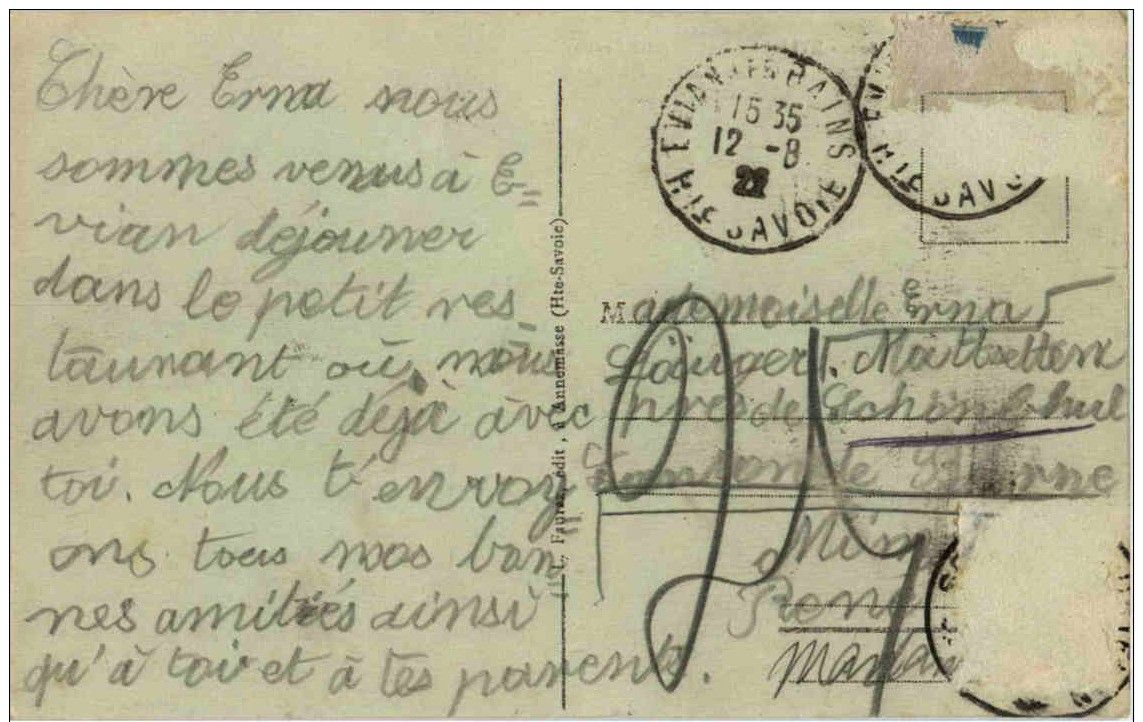 Chère Erna nous
sommes venus à E=
vian déjeuner
dans le petit res
taurant où nous
avons été déjà avec
toi. Nous t'envoy
ons tous nos bon
nes amitiés ainsi
qu'à toi et à tes parents.
L. Faurax, édit, à Annemasse (Hte-Savoie)
EVIAN LES BAINS
15 35
12 -8
22
Hte SAVOIE
Hte SAVO
Mademoiselle Erna
Mattstettens
près de Schönbühl
canton de Berne